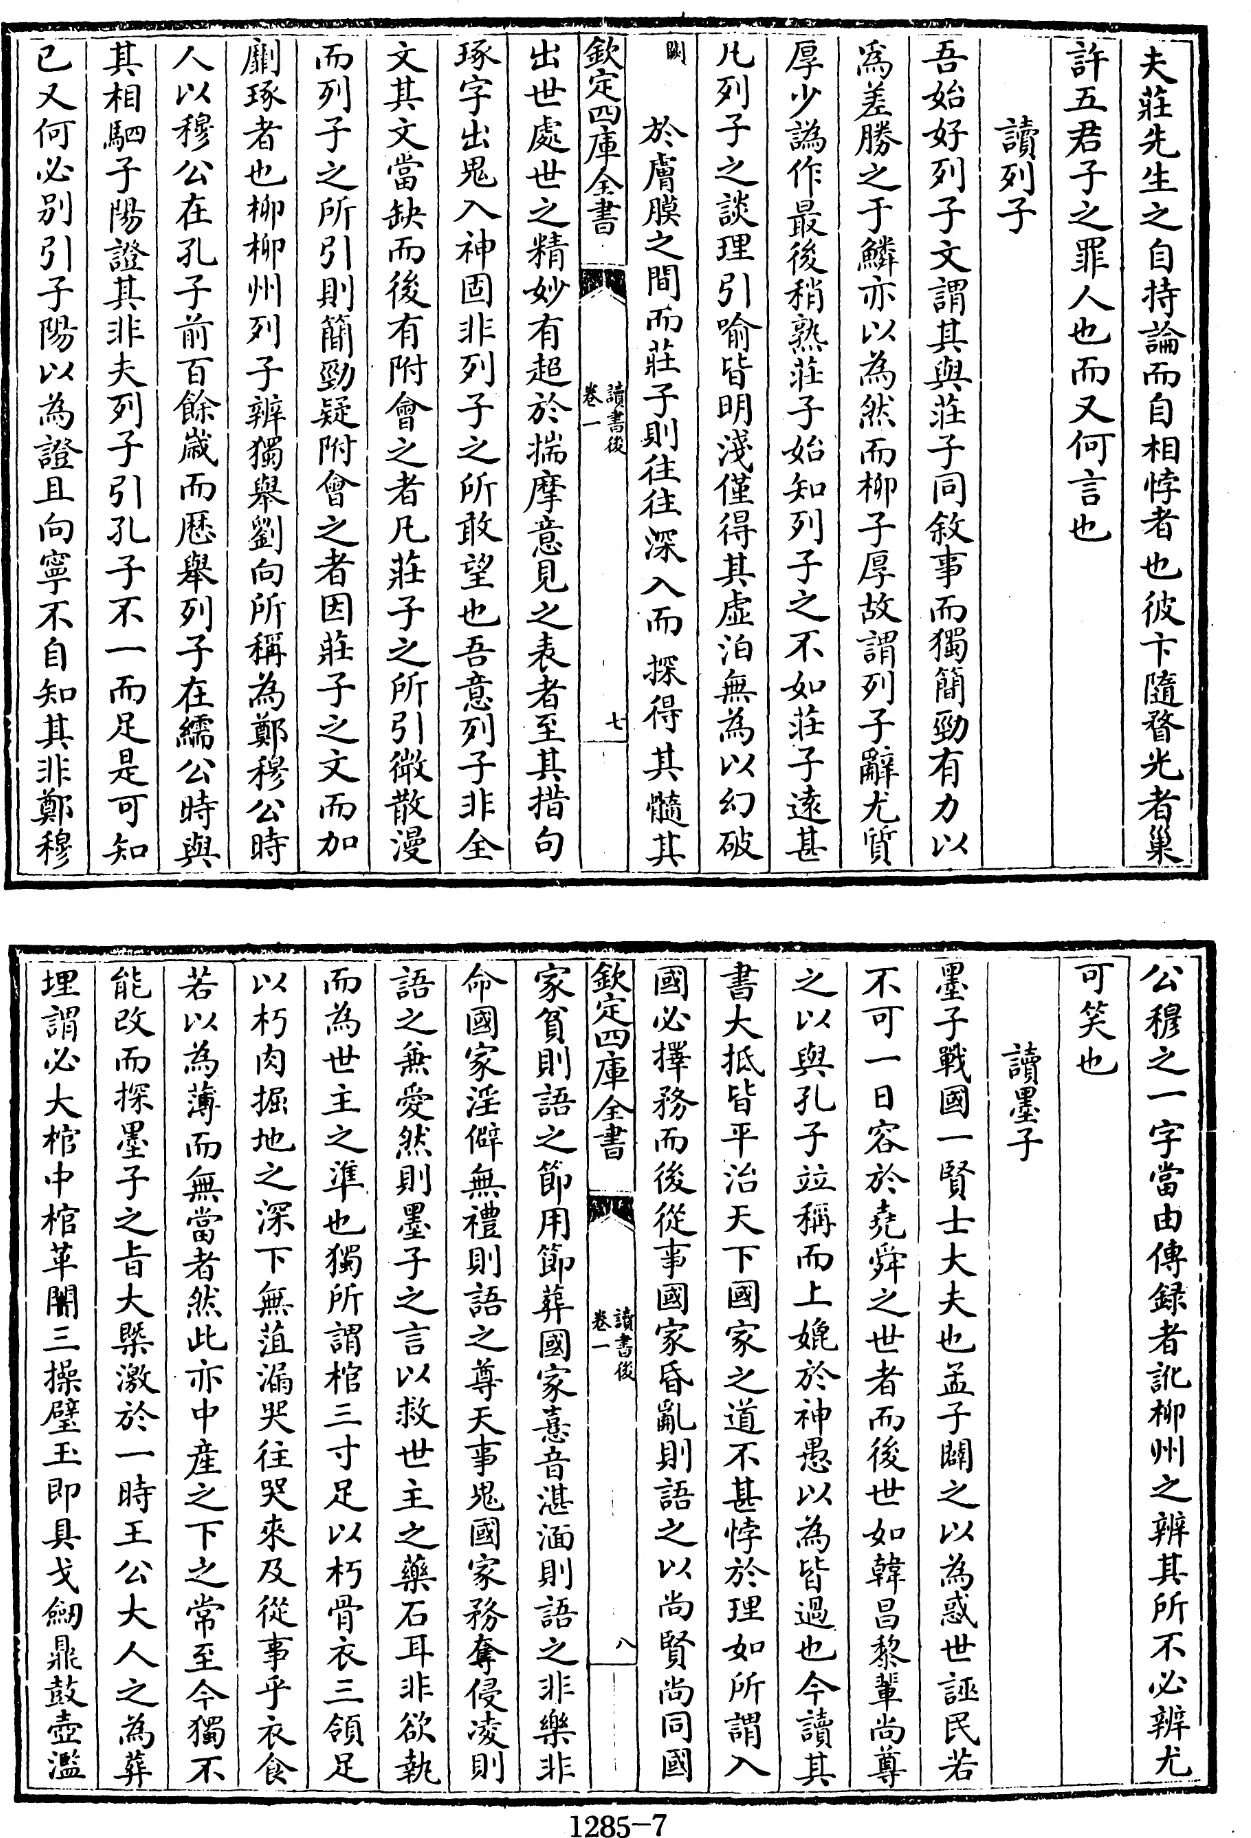 夫莊先生之自持論而自相悖者也彼卞隨瞀光者巢
許五君子之罪人也而又何言也
讀列子
吾始好列子文謂其與莊子同敘事而獨簡勁有力以
為差勝之于鱗亦以為然而柳子厚故謂列子辭尤質
厚少譌作最後稍熟莊子始知列子之不如莊子遠甚
凡列子之談理引喻皆明淺僅得其虛泊無為以幻破
闕於膚膜之間而莊子則往往深入而探得其髓其
欽定四庫全書
讀書後
卷一
七
出世處世之精妙有超於揣摩意見之表者至其措句
琢字出鬼入神固非列子之所敢望也吾意列子非全
文其文當缺而後有附會之者凡莊子之所引微散漫
而列子之所引則簡勁疑附會之者因莊子之文而加
劘琢者也柳柳州列子辨獨舉劉向所稱為鄭穆公時
人以穆公在孔子前百餘歲而歷舉列子在繻公時與
其相駟子陽證其非夫列子引孔子不一而足是可知
已又何必別引子陽以為證且向寧不自知其非鄭穆
公穆之一字當由傳録者訛柳州之辨其所不必辨尤
可笑也
讀墨子
墨子戰國一賢士大夫也孟子闢之以為惑世誣民若
不可一日容於堯舜之世者而後世如韓昌黎輩尚尊
之以與孔子竝稱而上媲於神愚以為皆過也今讀其
書大抵皆平治天下國家之道不甚悖於理如所謂入
國必擇務而後從事國家昏亂則語之以尚賢尚同國
欽定四庫全書
讀書後
卷一
八
家貧則語之節用節葬國家憙音湛湎則語之非樂非
命國家淫僻無禮則語之尊天事鬼國家務奪侵凌則
語之兼愛然則墨子之言以救世主之藥石耳非欲執
而為世主之準也獨所謂棺三寸足以朽骨衣三領足
以朽肉掘地之深下無菹漏哭往哭來及從事乎衣食
若以為薄而無當者然此亦中產之下之常至今獨不
能改而探墨子之旨大槩激於一時王公大人之為葬
埋謂必大棺中棺革闠三操璧玉即具戈劒鼎鼓壺濫
1285-7